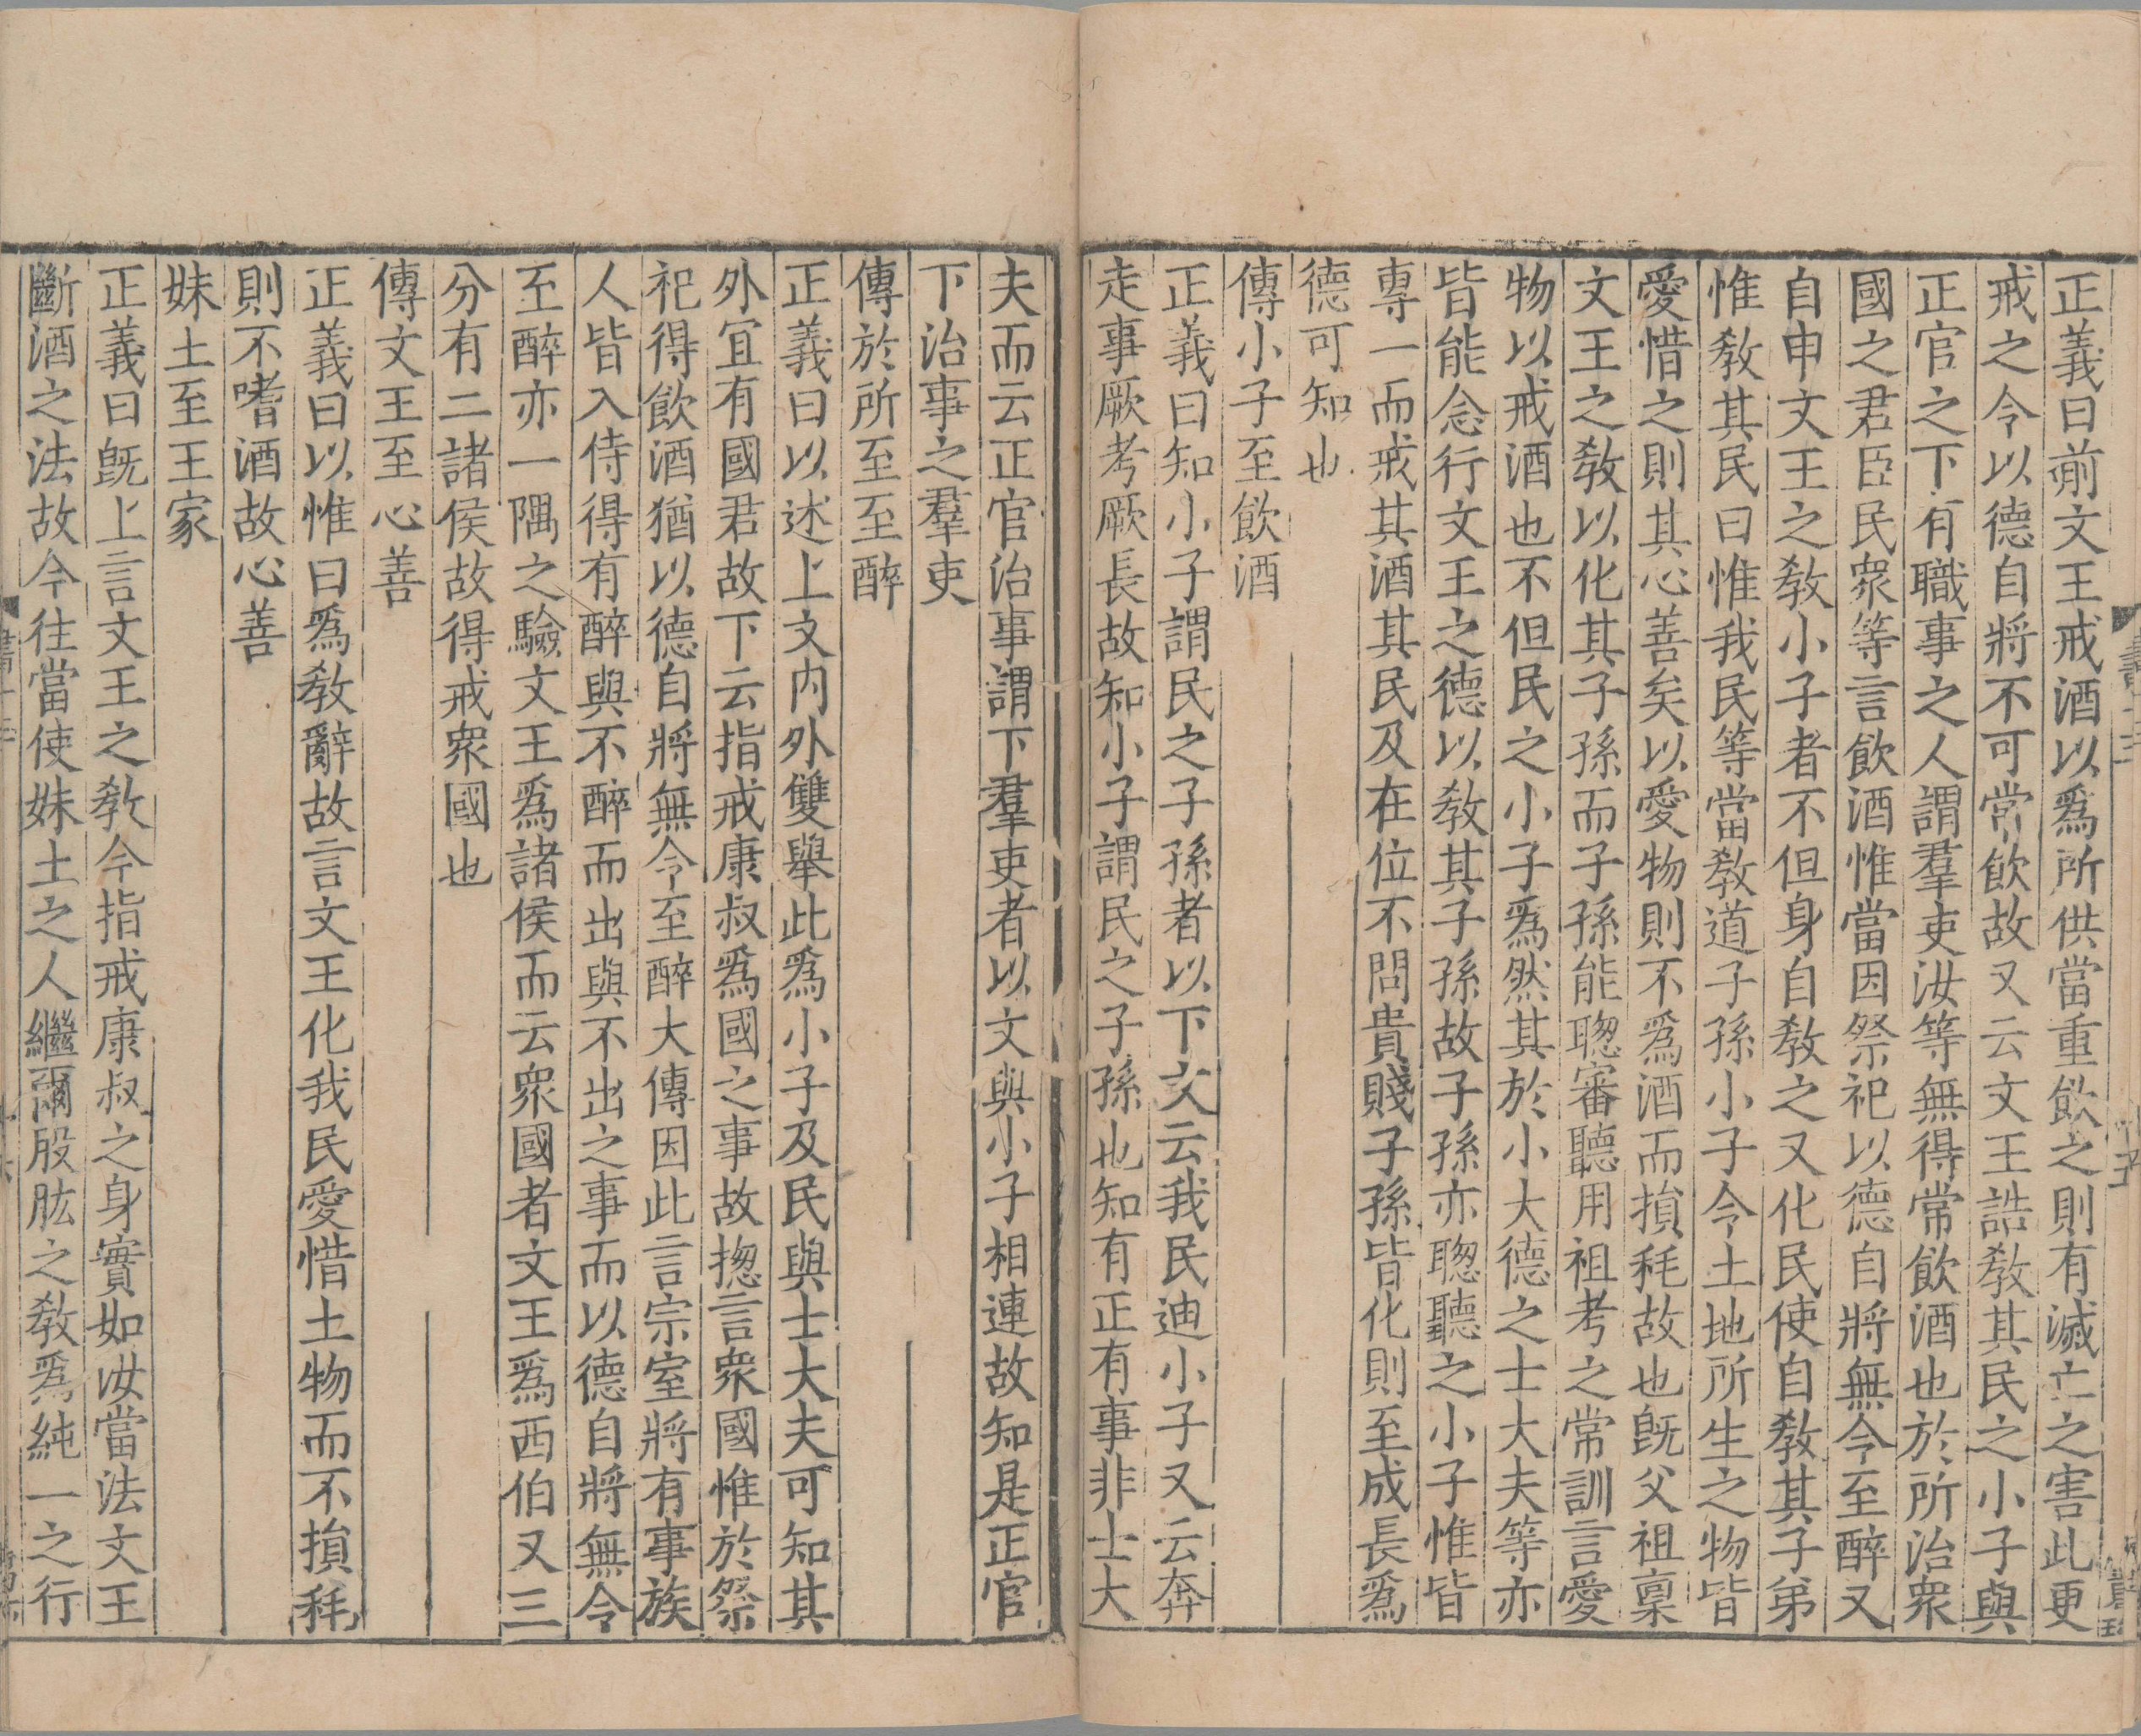 正義曰前文王戒酒以爲所供當重飲之則有滅亡之害此更
戒之令以德自將不可常飲故又云文王誥敎其民之小子與
正官之下有職事之人謂羣吏汝等無得常飲酒也於所治衆
國之君臣民衆等言飲酒惟當因祭祀以德自將無令至醉又
自申文王之敎小子者不但身自敎之又化民使自敎其子弟
惟敎其民曰惟我民等當敎道子孫小子令土地所生之物皆
愛惜之則其心善矣以愛物則不爲酒而損秏故也旣父祖稟
文王之敎以化其子孫而子孫能聦審聽用祖考之常訓言愛
物以戒酒也不但民之小子爲然其於小大德之士大夫等亦
皆能念行文王之德以敎其子孫故子孫亦聦聽之小子惟皆
專一而戒其酒其民及在位不問貴賤子孫皆化則至成長爲
德可知也
傳小子至飲酒
正義曰知小子謂民之子孫者以下文云我民迪小子又云奔
走事厥考厥長故知小子謂民之子孫也知有正有事非士大
夫而云正官治事謂下羣吏者以文與小子相連故知是正官
下治事之羣吏
傳於所至至醉
正義曰以述上文内外雙舉此爲小子及民與士大夫可知其
外宜有國君故下云指戒康叔爲國之事故揔言衆國惟於祭
祀得飲酒猶以德自將無令至醉大傳因此言宗室將有事族
人皆入侍得有醉與不醉而出與不出之事而以德自將無令
至醉亦一隅之驗文王爲諸侯而云衆國者文王爲西伯又三
分有二諸侯故得戒衆國也
傳文王至心善
正義曰以惟曰爲敎辭故言文王化我民愛惜土物而不損秏
則不嗜酒故心善
妹土至王家
正義曰旣上言文王之敎今指戒康叔之身實如汝當法文王
斷酒之法故今往當使妹土之人繼爾股肱之敎爲純一之行